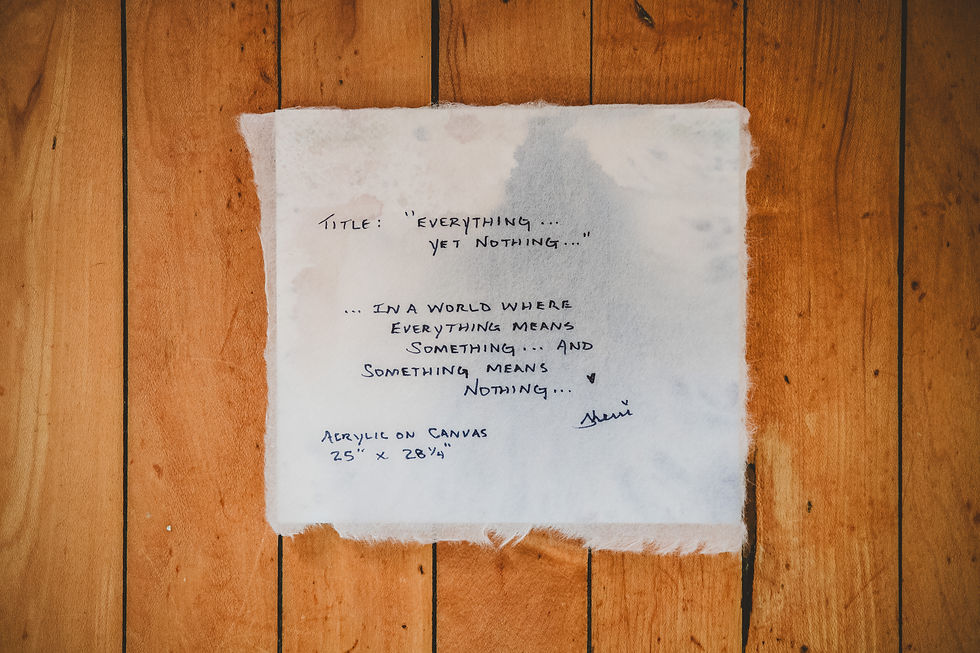 TITLE: "EVERYTHING...
YET NOTHING..."
... IN A WORLD WHERE
EVERYTHING MEANS
SOMETHING... AND
SOMETHING MEANS
NOTHING...
ACRYLIC ON CANVAS
25" x 28 1/4"